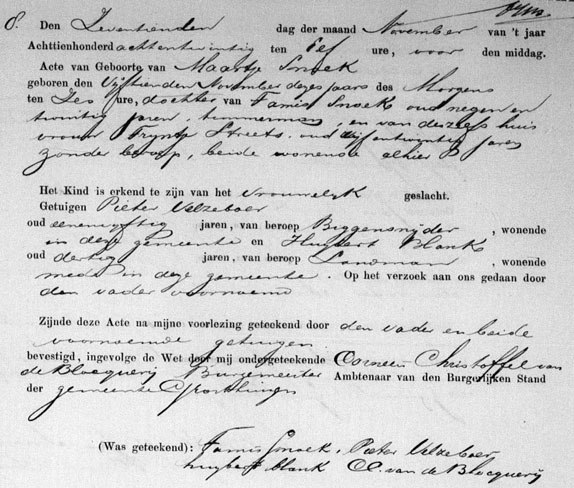 8. Den Zeventienden dag der maand November van 't jaar
Achttienhonderd achtentwintig ten elf ure, voor den middag.
Acte van Geboorte van Maartje Snoek
geboren den Vijftienden November dezes jaars des Morgens
ten Zes ure, dochter van Famis Snoek oud negen en
twintig jaren, timmerman, en van deszelfs huis
vrouw Streets, oud vijfentwintig jaren
zonder beroep, beide wonende alhier
Het Kind is erkend te zijn van het Vrouwelyk geslacht.
Getuigen Pieter Velzeboer
oud eenenvyftig jaren, van beroep Biggensnyder, wonende
in deze gemeente en Huybert Blank
oud dertig jaren, van beroep Landman, wonende
mede in deze gemeente. Op het verzoek aan ons gedaan door
den vader voornoemd
Zijnde deze Acte na mijne voorlezing geteekend door den vader en beide
voornoemde getuigen
bevestigd, ingevolge de Wet door mij ondergeteekende Corneis Christoffel van
de Blocquerij Burgemeester Ambtenaar van den Burgerlijken Stand
der gemeente
(Was geteekend): Famis Snoek, Pieter Velzeboer
huybert blank CC. van de Blocquerij